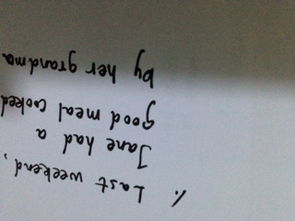 1. Last weekend,
Jane had a
good meal cooked
by her grandma